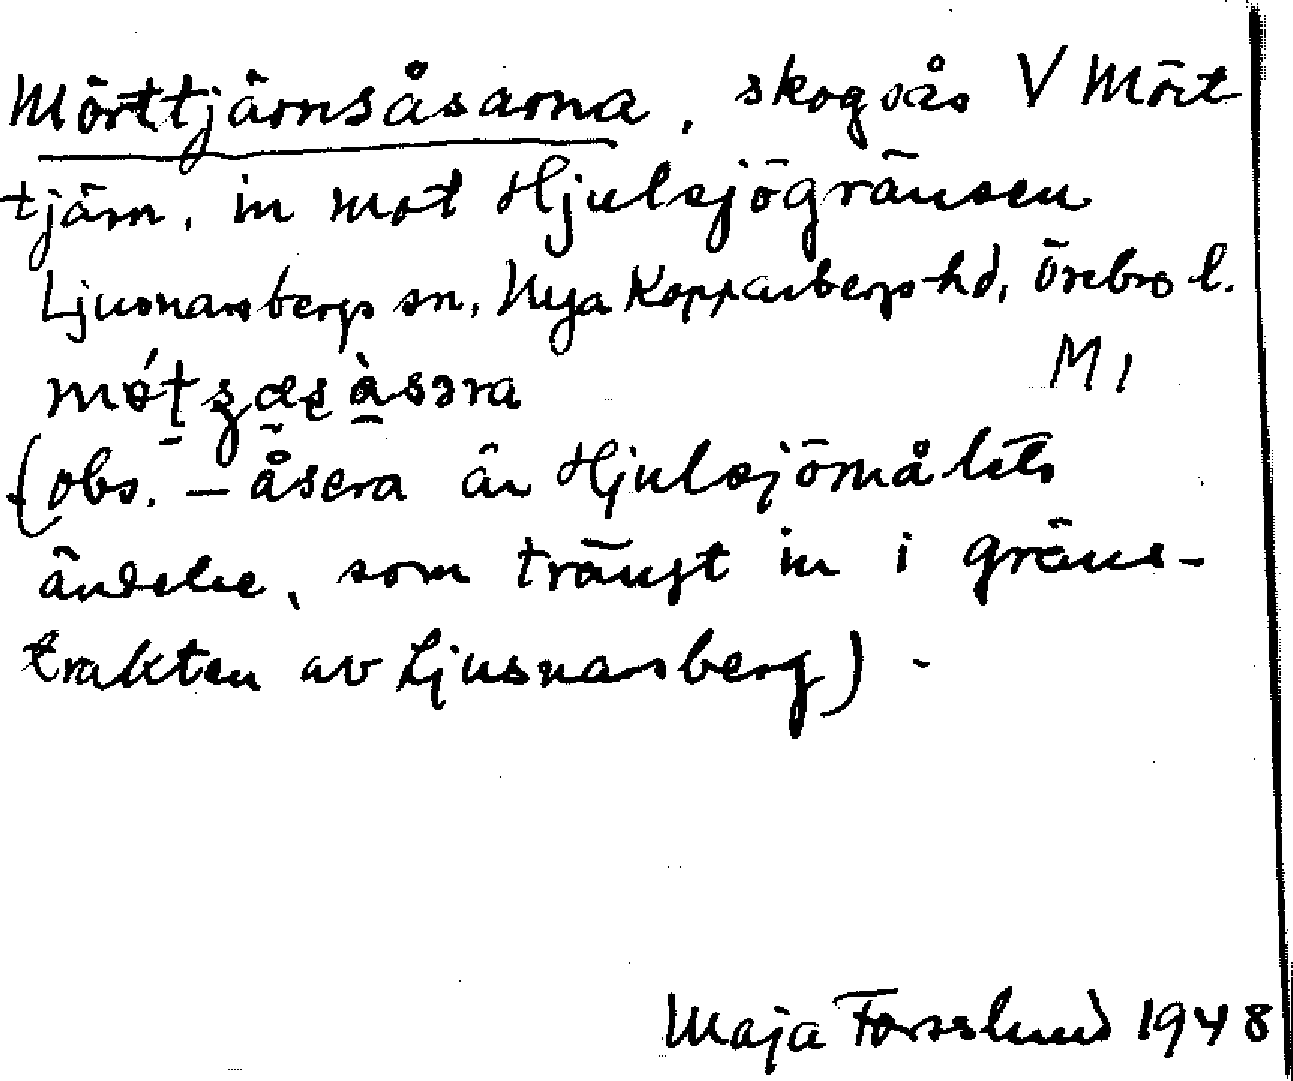 Mörttjärnsåsarna, skogsås V Mört
tjärn, in mot Hjulsjögränsen
Ljusnarsbergs sn, Nya Kopparbergs hd, Örebro l.
M 1
(obs. – åsera är Hjulsjömålets
ändelse, som trängt in i gräns-
trakten av Ljusnarsberg) -
Maja Forsslund 1948